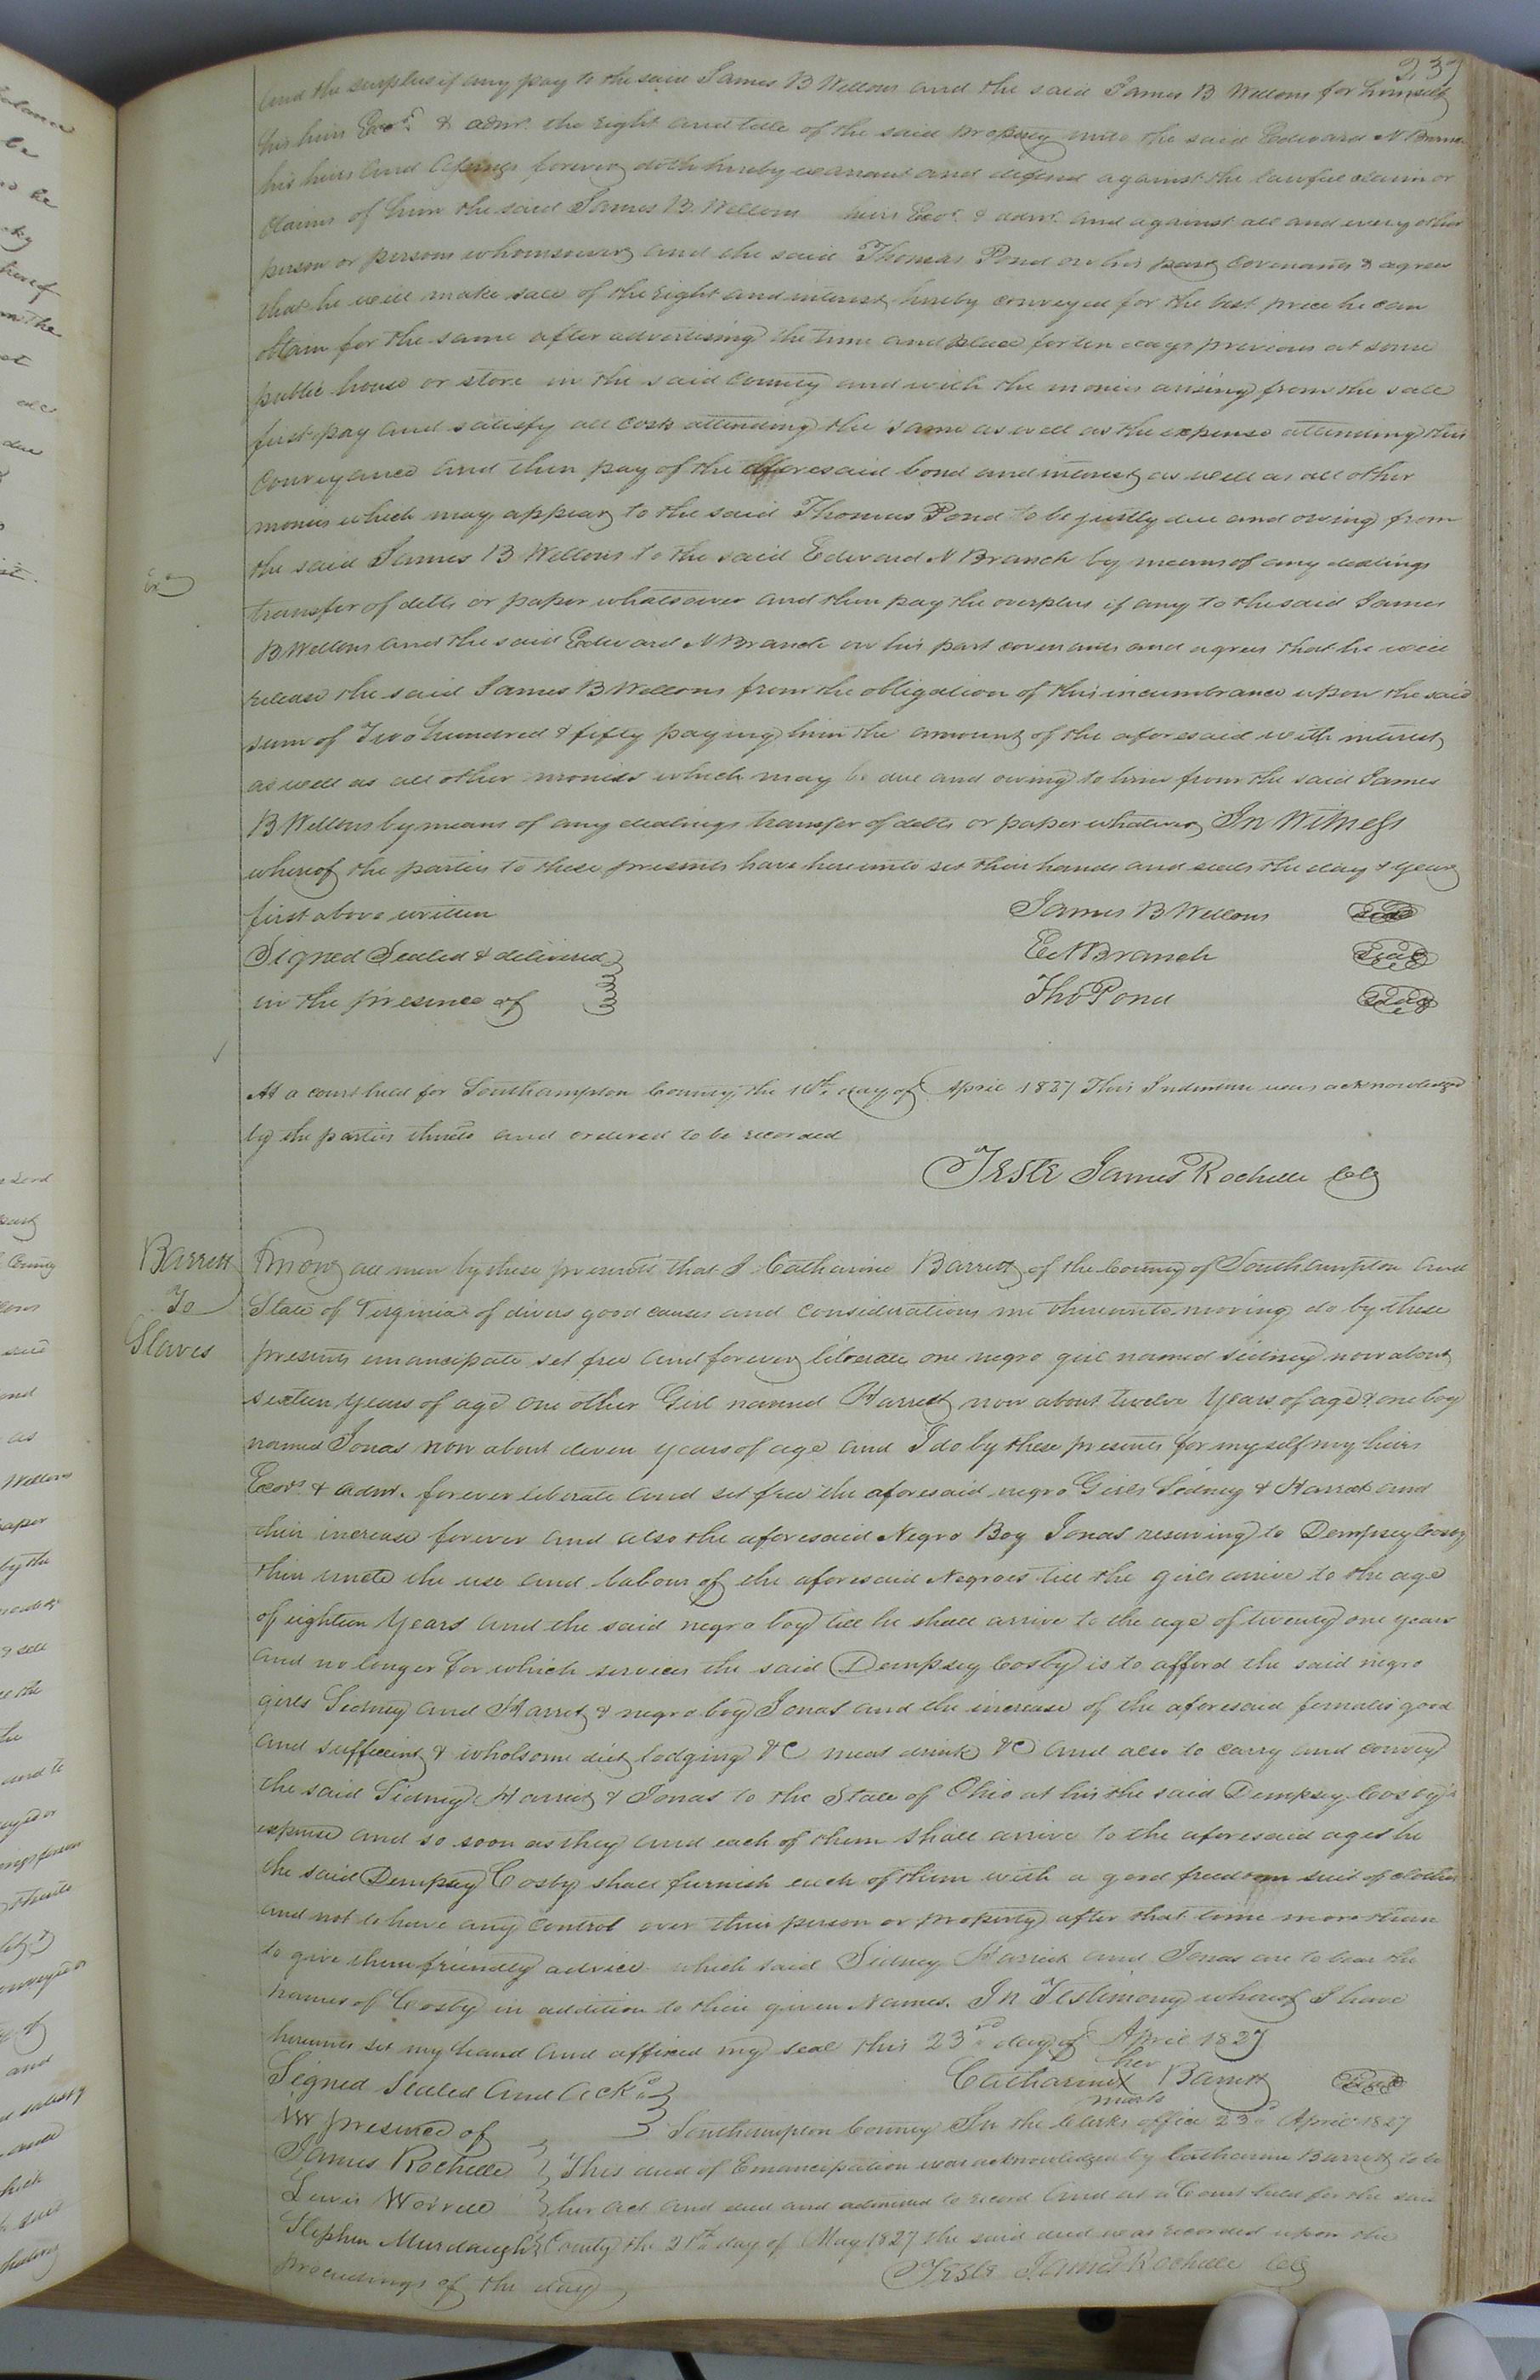 237
and the surplus if any pay to the said James B Wellons and the said James B Wellons for himself
his heirs Exors & admr. the right and title of the said property unto the said Edward N Branch
his heirs and assigns forever doth hereby warrant and defend against the lawful claim or
claims of him the said James B. Wellons heirs Exor. & admr. and against all and every other
person or persons whomsoever and the said Thomas Pond on his part covenants & agrees
that he will make sale of the right and interest hereby conveyed for the best price he can
obtain for the same after advertising the time and place for ten days previous at some
public house or store in the said County and with the monies arising from the sale
first pay and satisfy all costs attending the same as well as the expense attending this
Conveyance and then pay of the afforesaid bond and interest as well as all other
monies which may appear to the said Thomas Pond to be justly due and owing from
the said James B Wellons to the said Edward N Branch by means of any dealings
Exd
transfer of debts or paper whatsoever and then pay the overplus if any to the said James
B Wellons and the said Edward N Branch on his part covenants and agrees that he will
release the said James B Wellons from the obligation of this incumbrance upon the said
sum of Two hundred & fifty paying him the amount of the aforesaid with interest
as well as all other monies which may be due and owing to him from the said James
B Wellons by means of any dealings transfer of debts or paper whatever In Witness
whereof the parties to these presents have hereunto set their hands and seals the day & year
first above written James B Wellons Seal
Signed Sealed & delivered E N Branch Seal
in the presence of Tho Pond Seal
At a court held for Southampton County the 16th day of April 1827 This Indenture was acknowledged
by the parties thereto and ordered to be recorded
Teste James Rochelle CC
Barrett
To
Slaves
Know all men by these presents that I Catharine Barrett of the County of Southampton and
State of Virginia of divers good causes and considerations me thereunto moving do by these
presents emancipate set free and forever liberate one negro girl named Sidney now about
sixteen years of age one other Girl named Harriet now about twelve Years of age & one boy
named Jonas now about eleven years of age and I do by these presents for myself my heirs
Exors. & admr. forever liberate and set free the aforesaid negro Girls Sidney & Harriet and
their increase forever and also the aforesaid Negro Boy Jonas reserving to Dempsey Cosby
their uncle the use and labour of the aforesaid Negroes till the girls arrive to the age
of eighteen Years and the said negro boy till he shall arrive to the age of twenty one years
and no longer for which services the said Dempsey Cosby is to afford the said negro
girls Sidney and Harriet & negro boy Jonas and the increase of the aforesaid females good
and sufficient & wholsome diet lodging &C meat drink &C and also to carry and convey
the said Sidney Harriet & Jonas to the State of Ohio at his the said Dempsey Cosby's
expense and so soon as they and each of them shall arrive to the aforesaid ages he
the said Dempsey Cosby shall furnish each of them with a good freedom suit of clothes
and not to have any control over their person or property after that time more than
to give them friendly advice which said Sidney Harriet and Jonas are to bear the
names of Cosby in addition to their given Names. In Testimony whereof I have
hereunto set my hand and affixed my seal this 23rd day of April 1827
Signed Sealed and Ackd Catharine her X mark Barrett Seal
in presence of Southampton County In the Clerks office 23d April 1827
James Rochelle This deed of Emancipation was acknowledged by Catharine Barrett to be
Lewis Worrell her act and deed and admitted to record And at a Court held for the said
Stephen Murdaugh County the 21th day of May 1827 the said deed was recorded upon the
proceedings of the day Teste James Rochelle CC